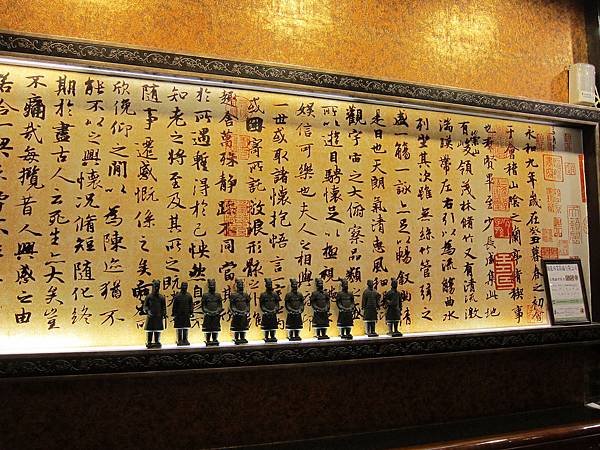 永和九年歲在癸丑暮春之初會
于會稽山陰之蘭亭脩稧事
也羣賢畢至少長咸集此地
有崇山峻領茂林脩竹又有清流激
湍暎帶左右引以為流觴曲水
列坐其次雖無絲竹管弦之
盛一觴一詠亦足以暢敘幽情
是日也天朗氣清惠風和
觀宇宙之大俯察品類之盛
所以遊目騁懷足以極視聽
娛信可樂也夫人之相與
一世或取諸懷抱悟言一
或因寄所託放浪形骸之
趣舍萬殊靜躁不同當其
於所遇暫得於己怏然自足
知老之將至及其所之既
隨事遷感慨係之矣向之
欣俛仰之間以為陳迹猶不
能不以之興懷況脩短隨化終
期於盡古人云死生亦大矣豈
不痛哉每攬昔人興感之由
若合一契未